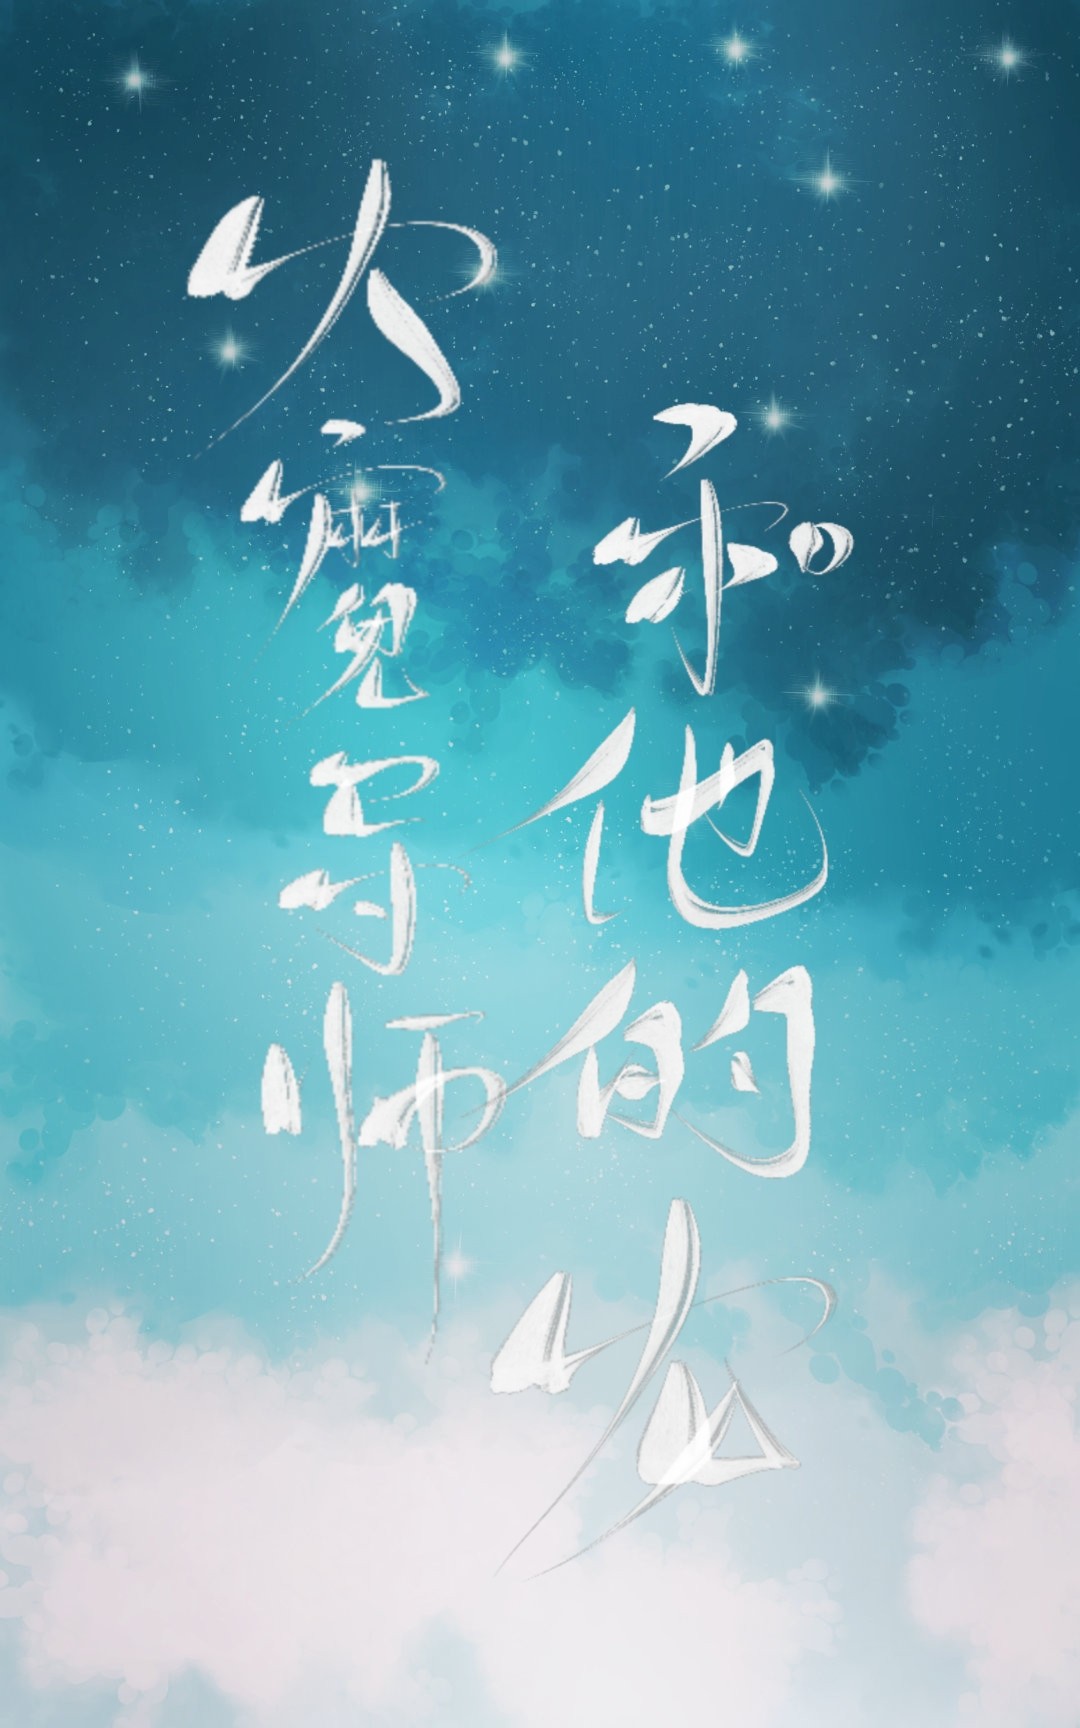 大魔导师
和他的龙